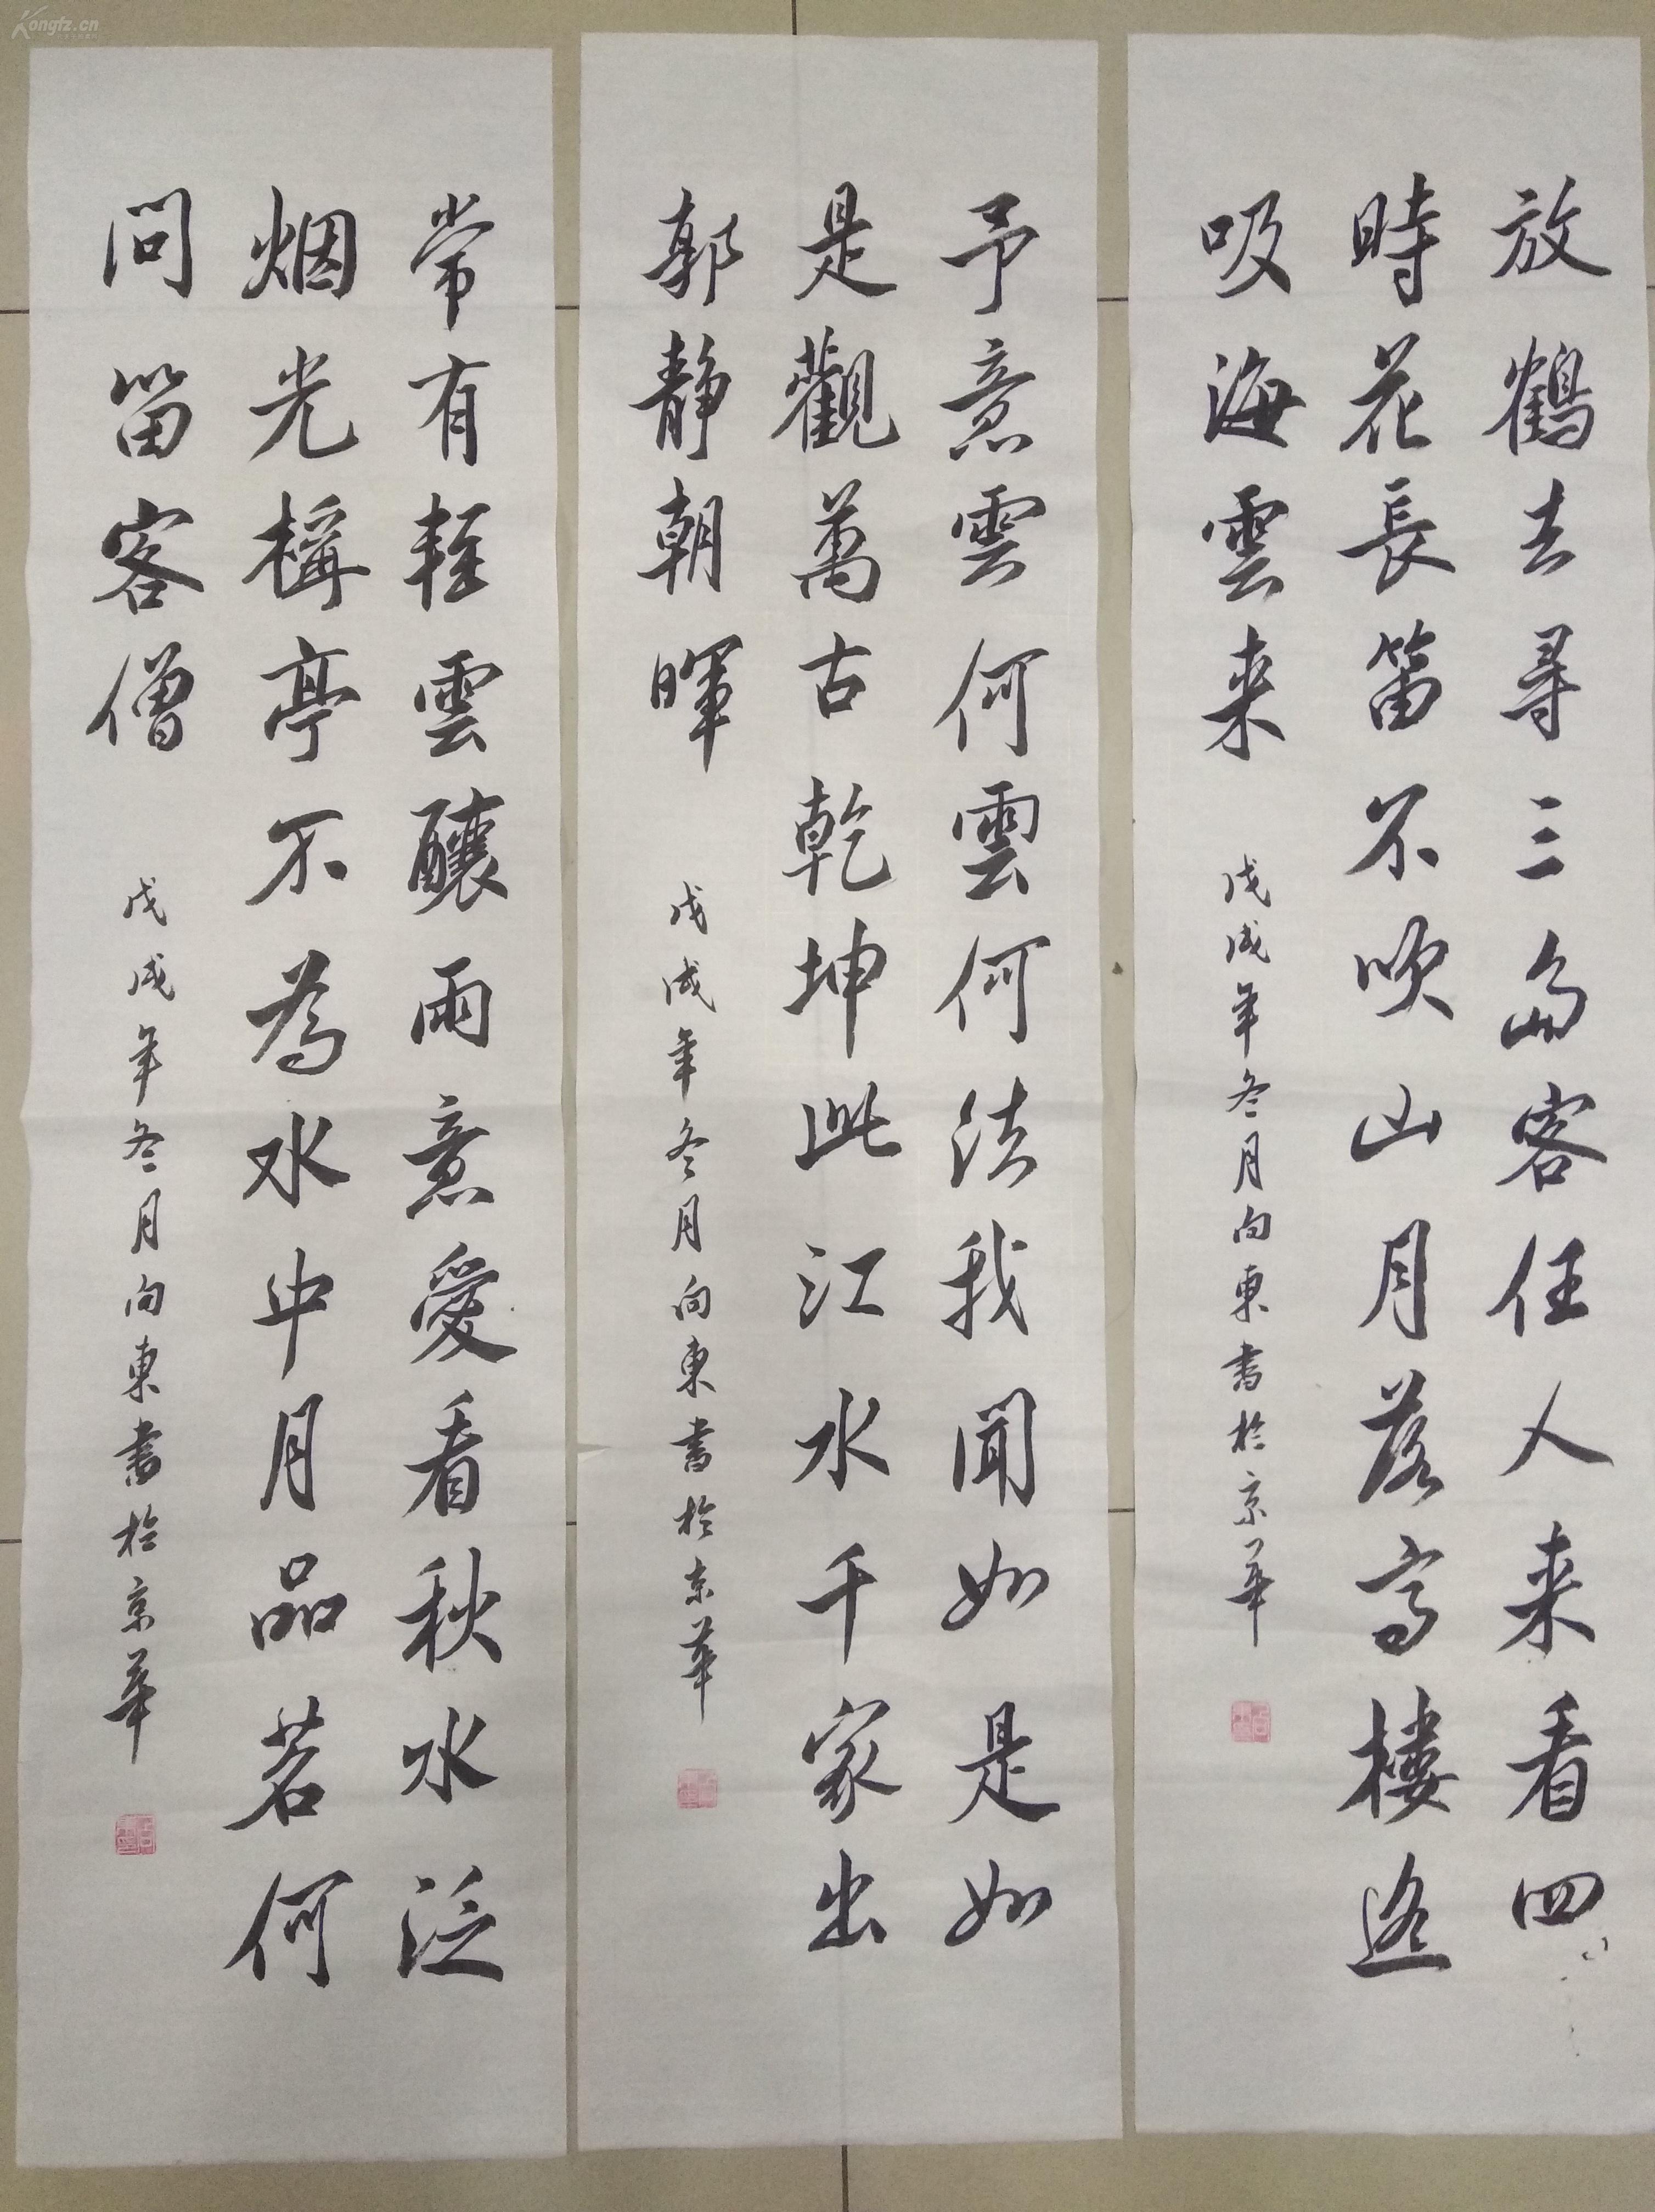 放鶴去尋三島客任人来看四
時花長笛不吹山月落高樓遥
吸海雲来
戊戌年冬月向東書於京華
予意雲何雲何法我聞如是如
是觀萬古乾坤此江水千家出
郭静朝暉
戊戌年冬月向東書於京華
常有輕雲釀雨意愛看秋水泛
烟光構亭不為水中月品茗何
問笛客僧
戊戌年冬月向東書於京華
Kongfz.cn